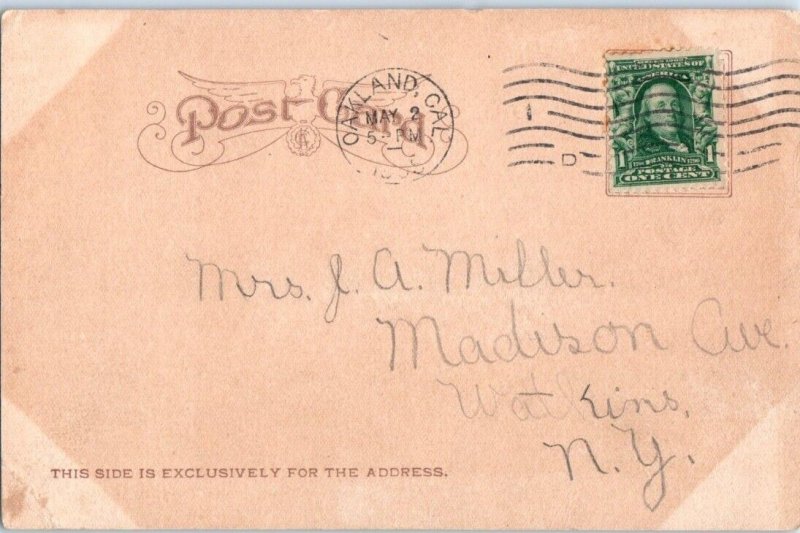 Post Card
OAKLAND, CAL.
MAY 2
5- PM
1
D
UNITED STATES OF
AMERICA
1 FRANKLIN 1
POSTAGE
ONE CENT
Mrs. J. A. Miller.
Madison Ave.
Watkins,
N.Y.
THIS SIDE IS EXCLUSIVELY FOR THE ADDRESS.